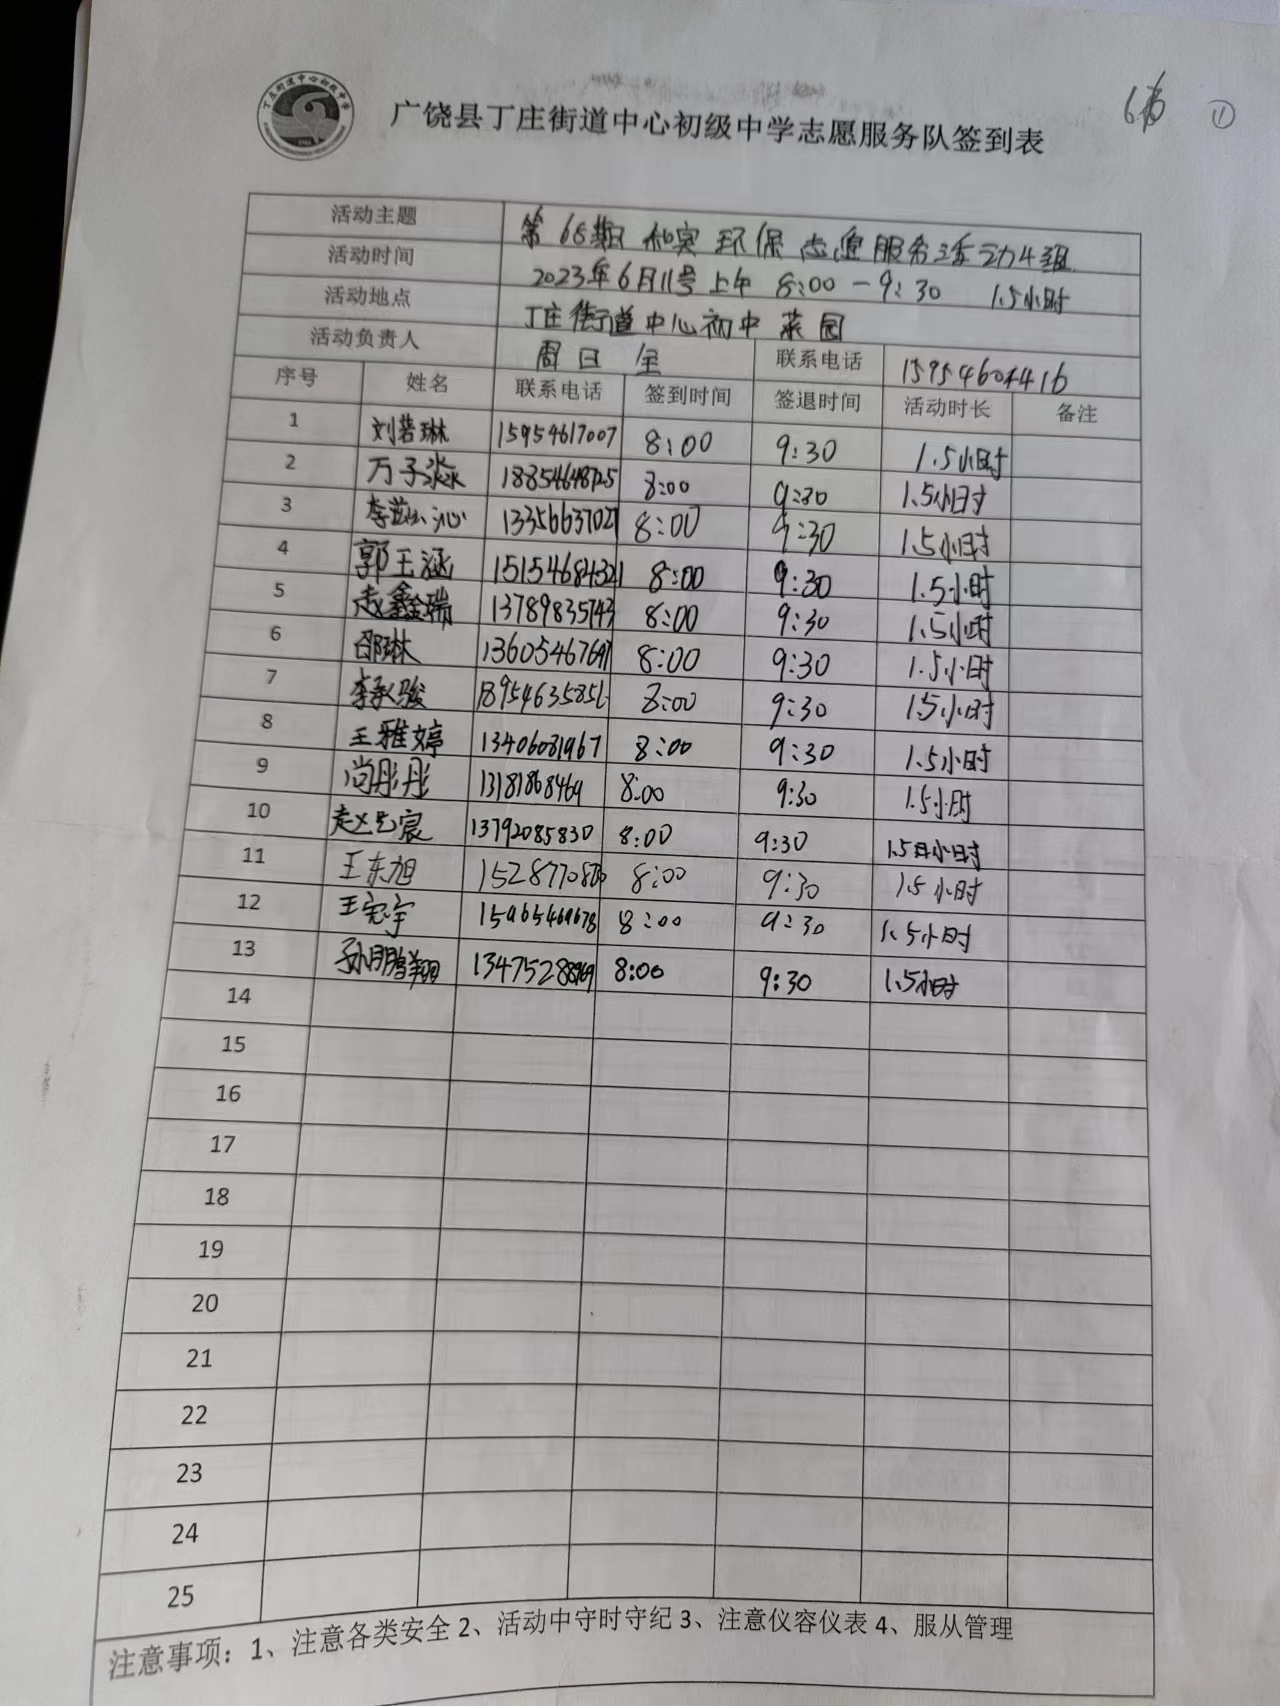 丁庄街道中心初级中学
广饶县丁庄街道中心初级中学志愿服务队签到表
①
活动主题 第68期 和安 环保 志愿服务活动4组
活动时间 2023年6月11号上午 8:00-9:30 1.5小时
活动地点 丁庄街道中心初中 菜园
活动负责人 周日全 联系电话
序号 姓名 联系电话 签到时间 签退时间 活动时长 备注
1 刘若琳 15954617007 8:00 9:30 1.5小时
2 万子淼 8:00 9:30 1.5小时
3 13356637027 8:00 9:30 1.5小时
4 郭王涵 15154684321 8:00 9:30 1.5小时
5 赵鑫瑞 13789835743 8:00 9:30 1.5小时
6 邵琳 13605467697 8:00 9:30 1.5小时
7 李承骏 8:00 9:30 1.5小时
8 王雅婷 13406081967 8:00 9:30 1.5小时
9 尚彤彤 13181868469 8:00 9:30 1.5小时
10 赵艺宸 13792085830 8:00 9:30 1.5小时
11 王东旭 8:00 9:30 1.5小时
12 王宪宇 15965469678 8:00 9:30 1.5小时
13 孙鹏翔 8:00 9:30 1.5小时
14
15
16
17
18
19
20
21
22
23
24
25
注意事项：1、注意各类安全 2、活动中守时守纪 3、注意仪容仪表 4、服从管理